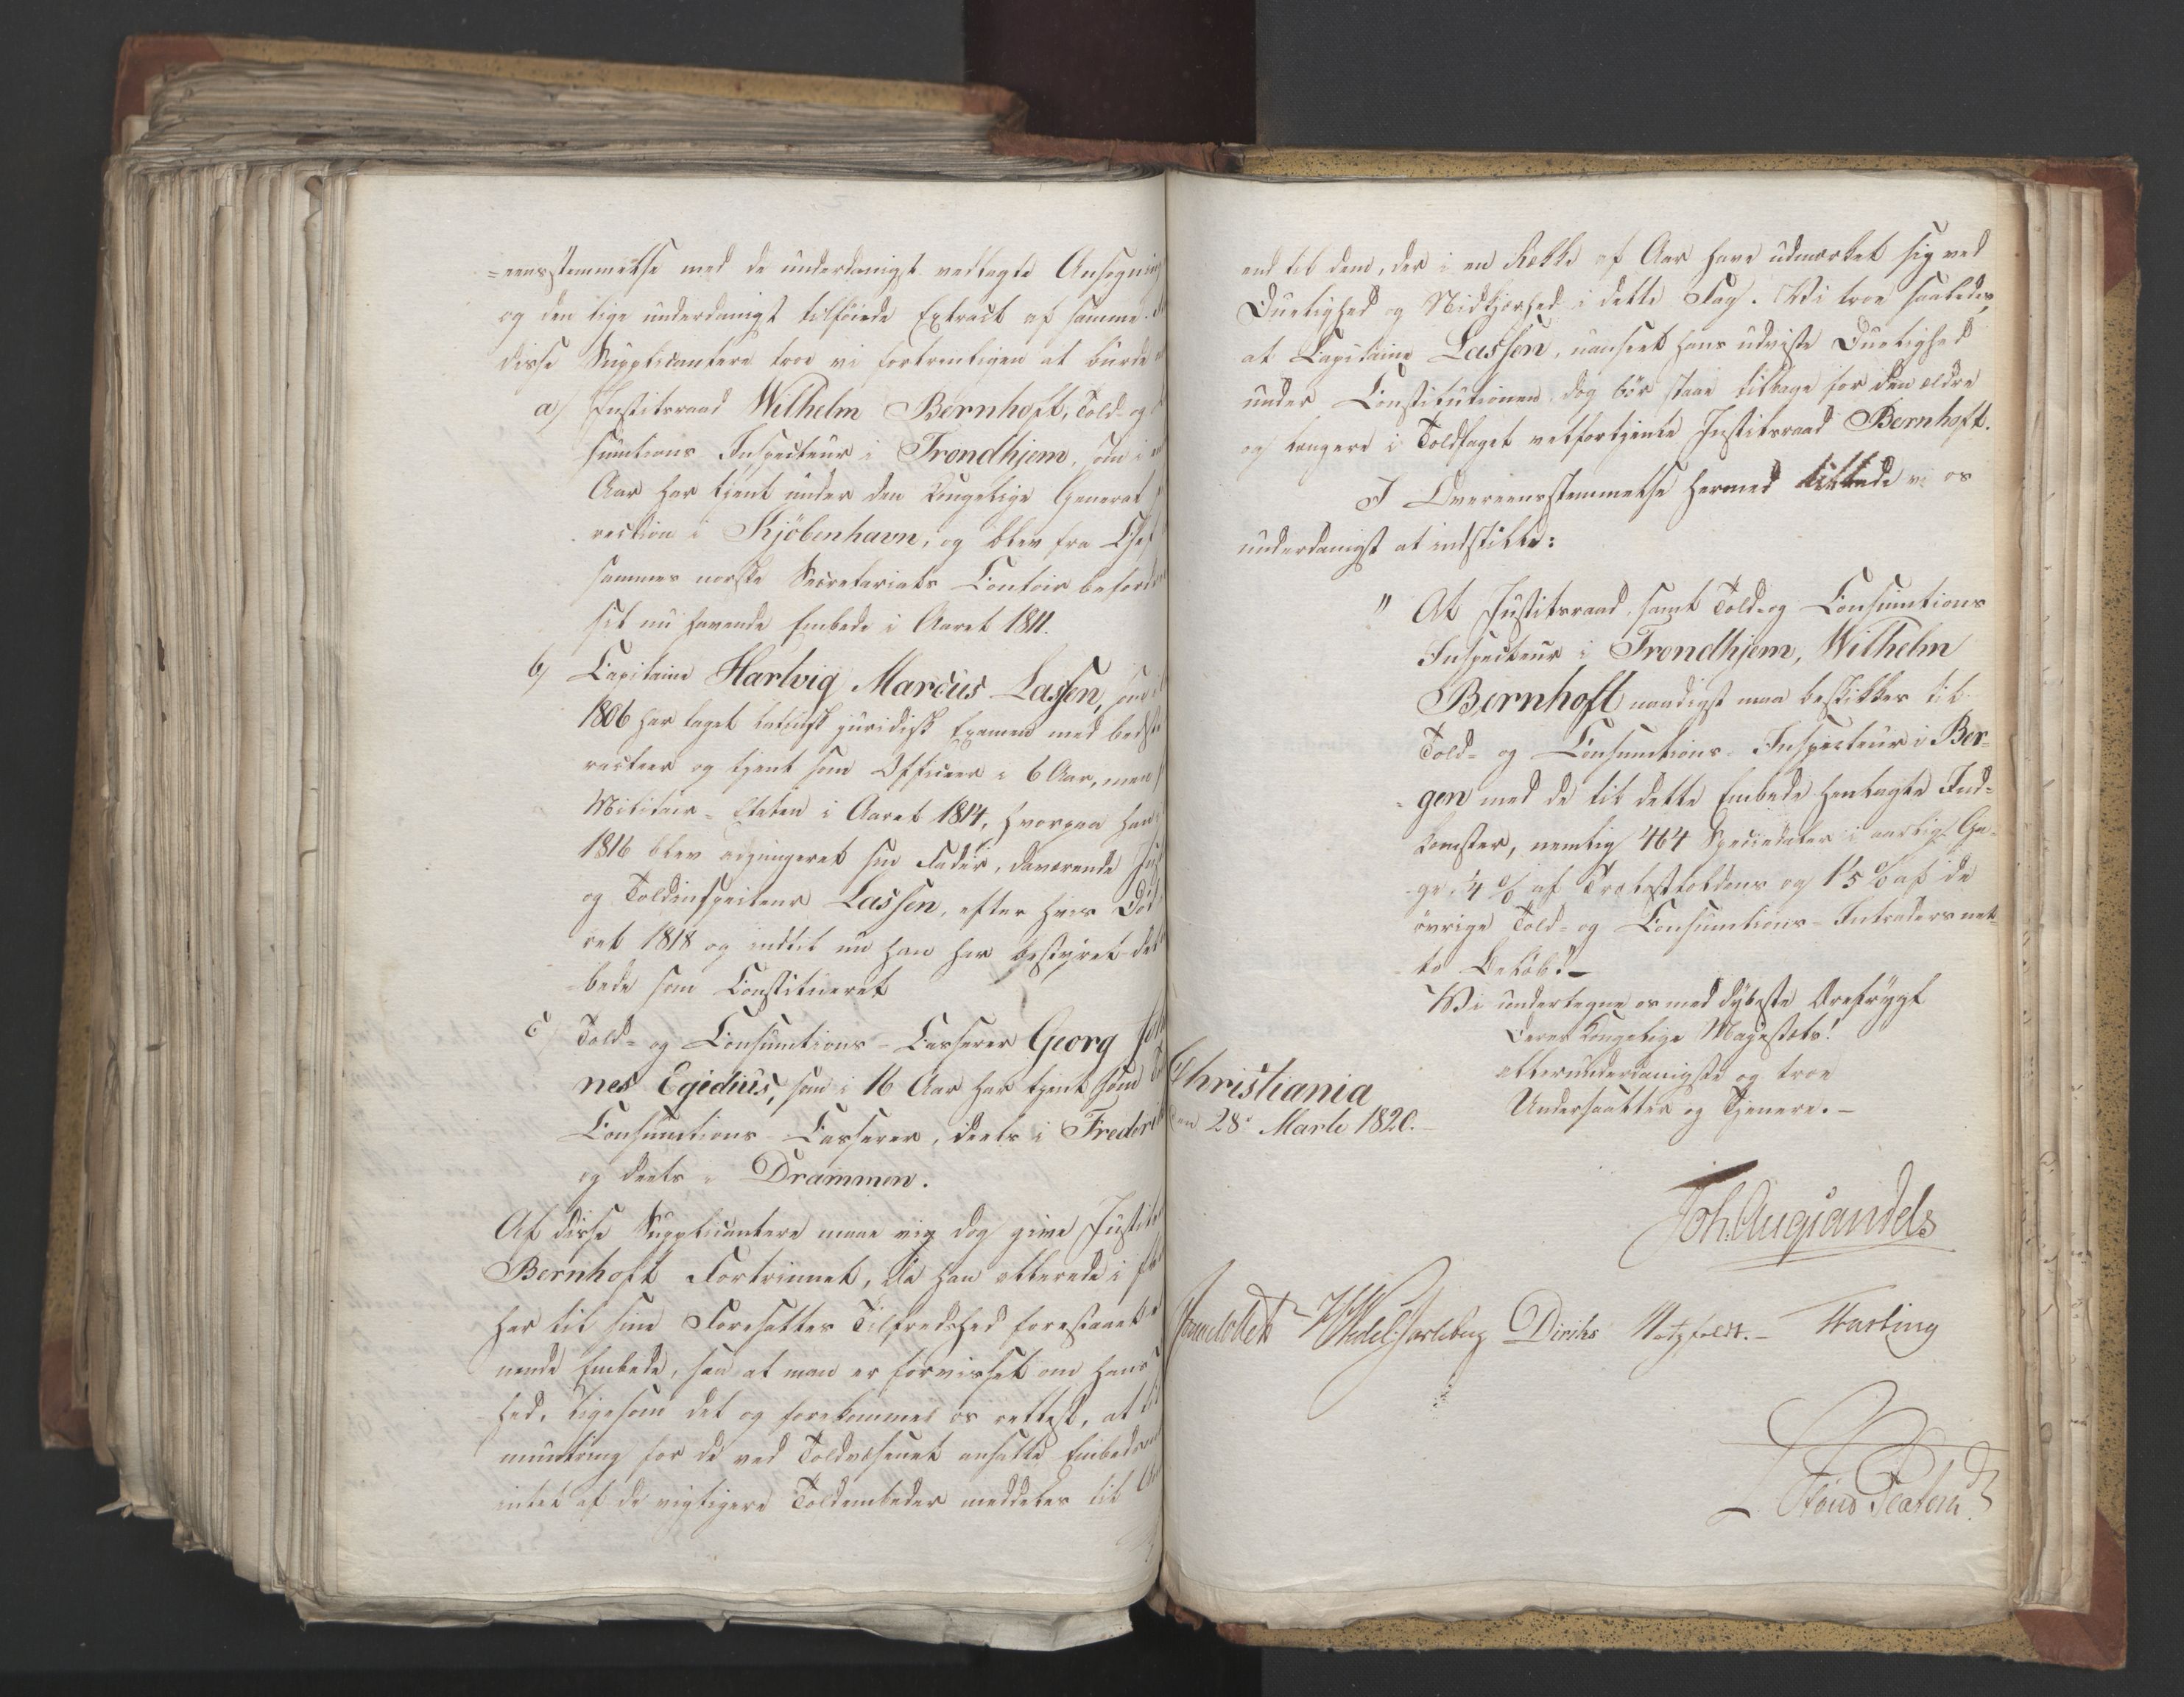 =eensstemmelse med de underdanigst vedlagte Ansøgning
og den lige underdanigst tilføiede Extract af samme.
disse Supplicantere troe vi fortrinligen at burde
a) Justitsraad Wilhelm Bernhoft, Told- og
sumtions Inspecteur i Trondhjem, som i
Aar har tjent under den Kongelige General
rection i Kjöbenhavn, og blev fra Chef
sammes norske Secretariats Contoir befordr
sit nu havende Embede i Aaret 1811.
b) Capitaine Hartvig Marcus Lassen, som
1806 har taget latinsk juridisk Examen med bedste
racteer og tjent som Officeer i 6 Aar, men
Militair-Etaten i Aaret 1814, hvorpaa han
1816 blev adjungeret sin Fader, daværende Just
og Toldinspecteur Lassen, efter hvis Död
ret 1818 og indtil nu han har bestyret det
bede som Constitueret
c) Told- og Consumtions-Casserer Georg Joh
nes Egidius, som i 16 Aar har tjent som
Consumtions-Casserer, deels i Frederik
og deels i Drammen.
Af disse Supplicantere maae vi dog give Justits
Bernhoft Fortrinnet, da han allerede i
har til sine Foresattes Tilfredshed forestaaet
nende Embede, saa at man er forvisset om hans
hed, ligesom det og forekommer os rettest, at
muntring for de ved Toldvæsenet ansatte Embedsm
intet af de vigtigere Toldembeder meddeles til
end til dem, der i en Række af Aar have udmærket sig ved
Duelighed og Nidkjærhed i dette Fag. Vi troe saaledes,
at Capitaine Lassen, uanseet hans udviste Duelighed
under Constitutionen dog bör staae tilbage for den ældre
og længere i Toldfaget velfortjente Justitsraad Bernhoft.
I Overeensstemmelse hermed tillade vi os
underdanigst at indstille:
" At Justitsraad, samt Told- og Consumtions
Inspecteur i Trondhjem, Wilhelm
Bernhoft naadigst maa beskikkes til
Told- og Consumtions-Inspecteur i Ber-
-gen med de til dette Embede henlagte Ind-
komster, nemlig 464 Speciedaler i aarlig Ga-
ge, 4 % af Trælasttolden og 1 5 % af de
övrige Told- og Consumtions-Intraders net-
to Belöb."
Vi undertegne os med dybeste Ærefrygt
Deres Kongelige Majestæts!
allerunderdanigste og troe
Undersaatter og Tjenere.-
Christiania
den 28de Martz 1820.
Joh. Aug Sandels
Sommerhielm HWedelJarlsberg Diriks Motzfeldt.- Fasting